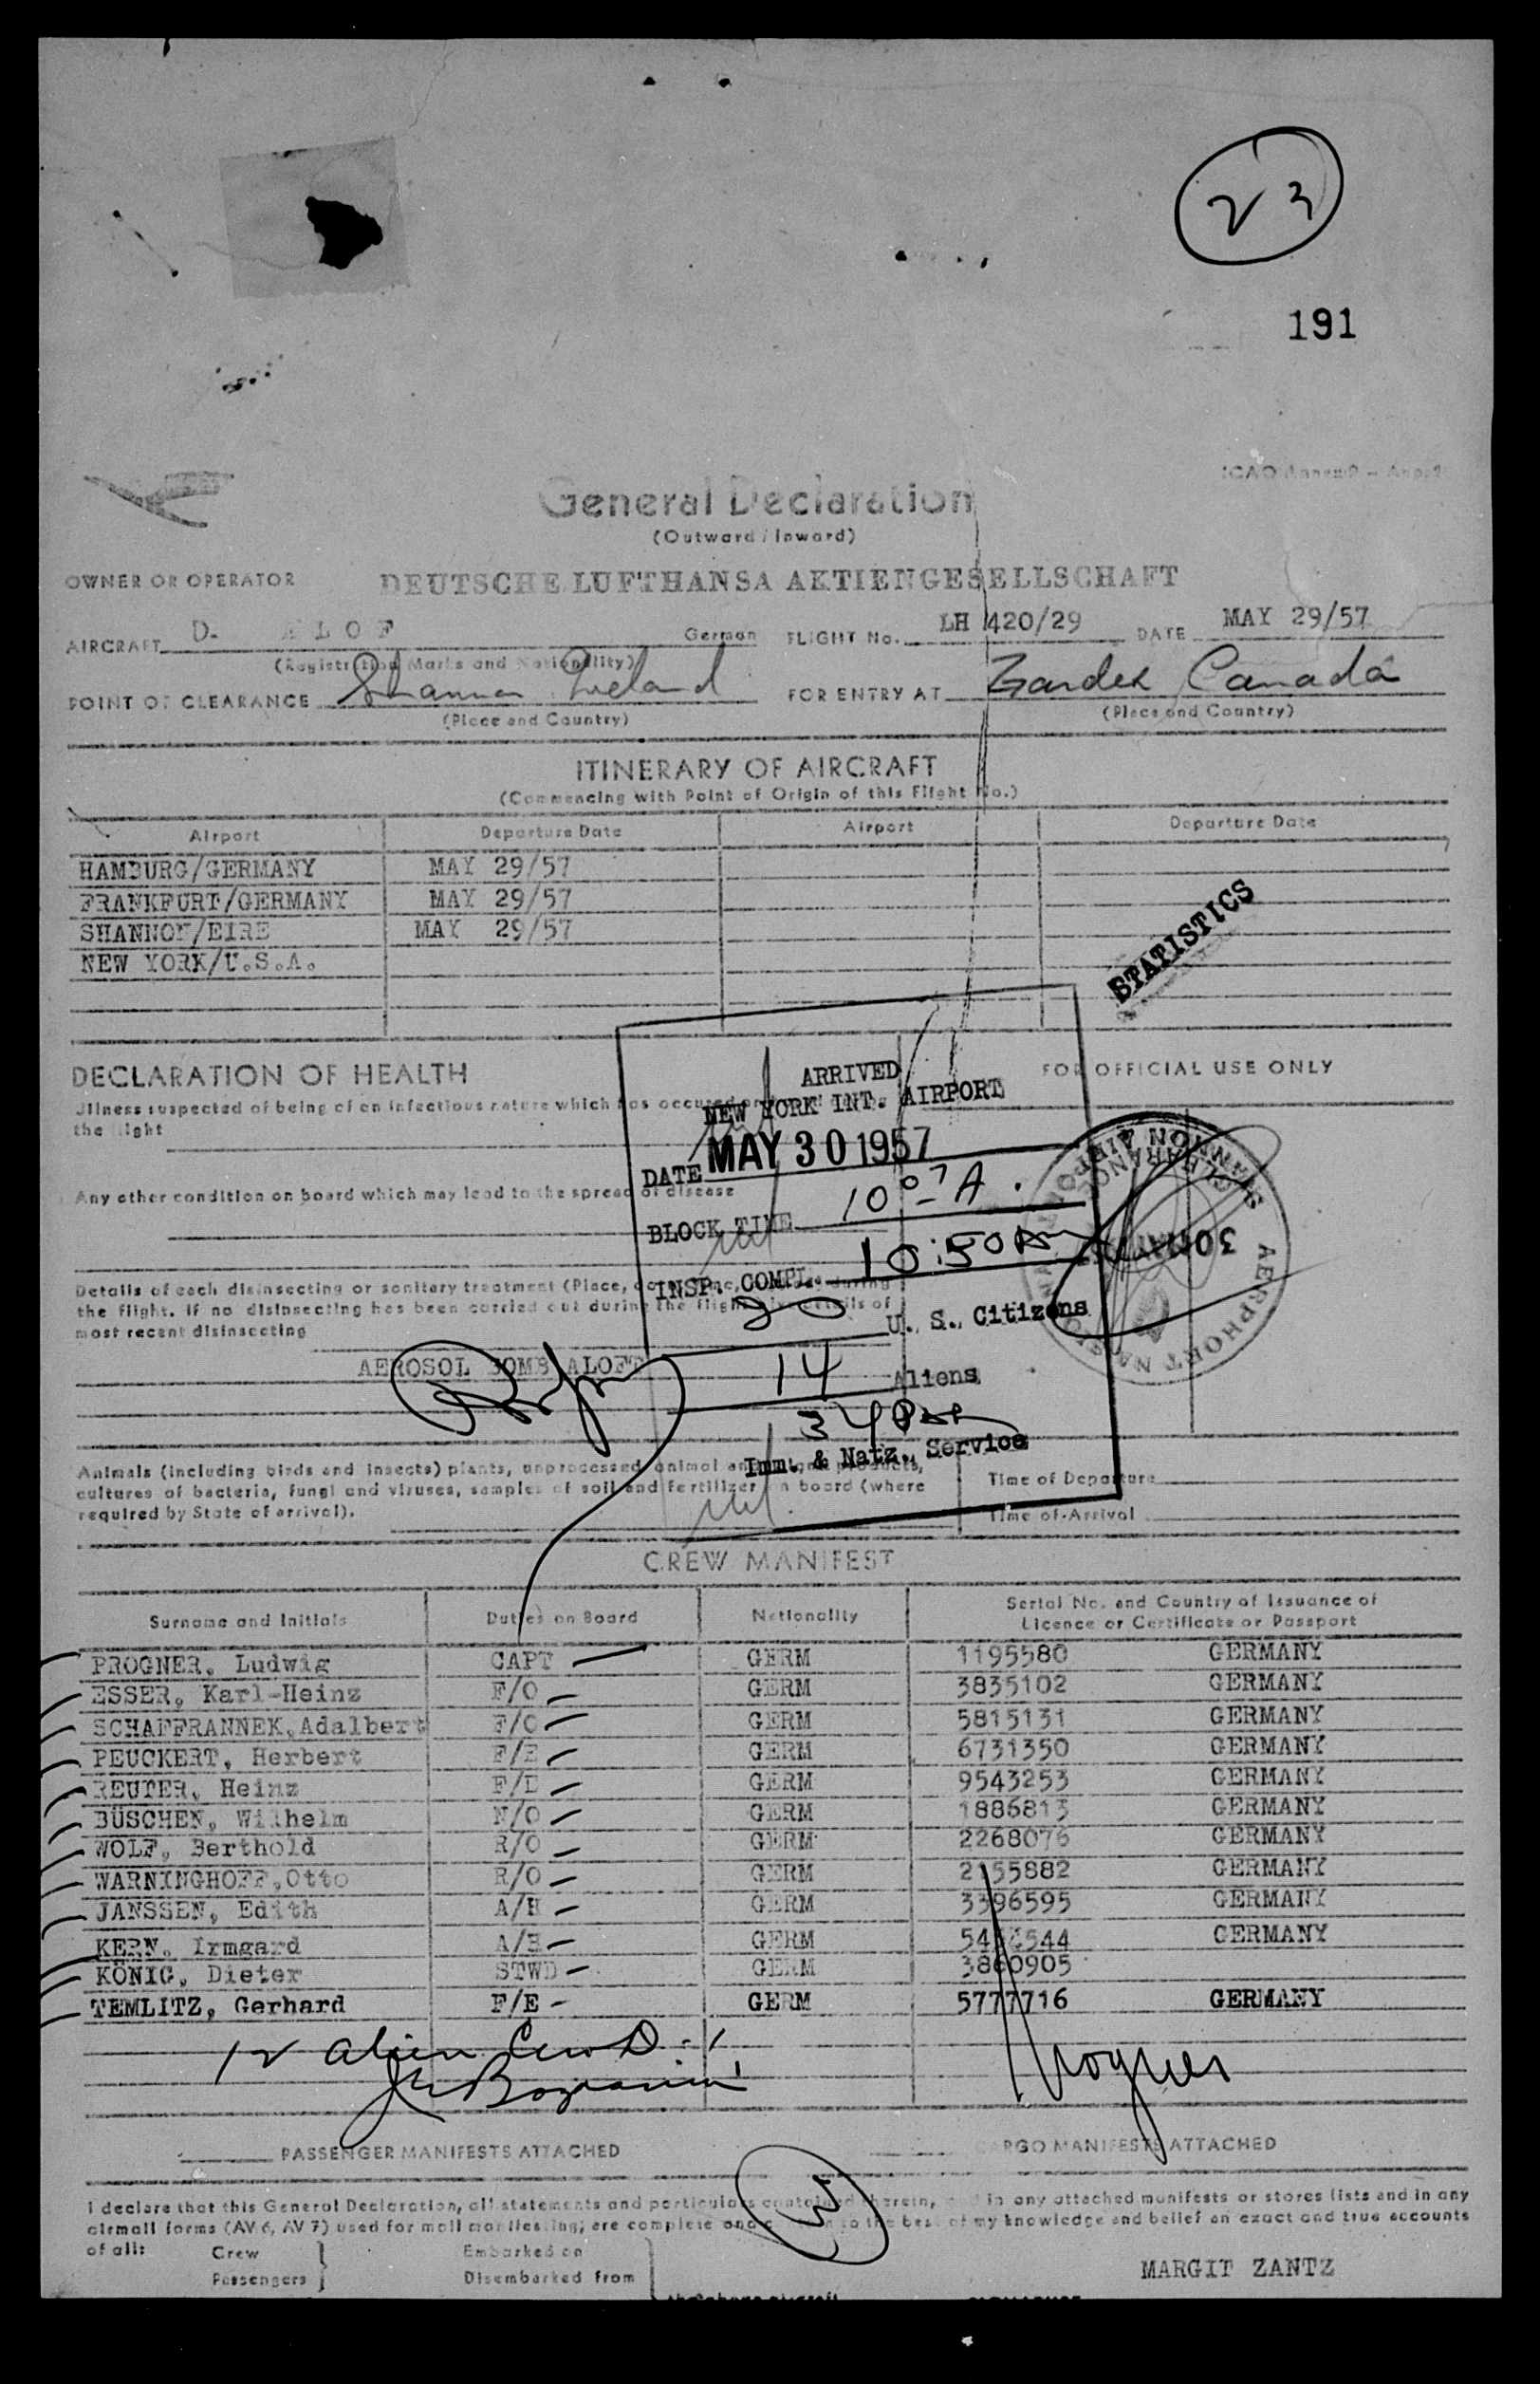 23
191
ICAO Annex 9 –
General Declaration
(Outward / Inward)
OWNER OR OPERATOR DEUTSCHE LUFTHANSA AKTIENGESELLSCHAFT
AIRCRAFT D- ALOF German FLIGHT No. LH 420/29 DATE MAY 29/57
(Registration Marks and Nationality)
POINT OF CLEARANCE Shannon Ireland FOR ENTRY AT Gander Canada
(Place and Country) (Place and Country)
ITINERARY OF AIRCRAFT
(Commencing with Point of Origin of this Flight No.)
Airport Departure Date Airport Departure Date
HAMBURG/GERMANY MAY 29/57
FRANKFURT/GERMANY MAY 29/57
SHANNON/EIRE MAY 29/57
NEW YORK/U.S.A.
STATISTICS
DECLARATION OF HEALTH
FOR OFFICIAL USE ONLY
Illness suspected of being of an infectious nature which has occured
the flight
Any other condition on board which may lead to the spread of disease
Details of each disinsecting or sanitary treatment (Place, during
the flight. If no disinsecting has been carried out during the flight give details of
most recent disinsecting
AEROSOL BOMB ALOFT
ARRIVED
NEW YORK INT. AIRPORT
DATE MAY 30 1957
BLOCK TIME 10 07 A.
INSP. COMPL. 10:50 AM
20 U. S. Citizens
14 Aliens
34
Imm. & Natz. Service
SHANNON AIRPORT
30 MAI
AERPHORT NA
Animals (including birds and insects) plants, unprocessed animal and plant products,
cultures of bacteria, fungi and viruses, samples of soil and fertilizer on board (where
required by State of arrival).
Time of Departure
Time of Arrival
CREW MANIFEST
Surname and Initials Duties on Board Nationality Serial No. and Country of Issuance of
Licence or Certificate or Passport
PROGNER, Ludwig CAPT GERM 1195580 GERMANY
ESSER, Karl-Heinz F/O GERM 3835102 GERMANY
SCHAFFRANNEK, Adalbert F/O GERM 5815131 GERMANY
PEUCKERT, Herbert F/E GERM 6731350 GERMANY
REUTER, Heinz F/E GERM 9543253 GERMANY
BÜSCHEN, Wilhelm N/O GERM 1886813 GERMANY
WOLF, Berthold R/O GERM 2268076 GERMANY
WARNINGHOFF, Otto R/O GERM 2155882 GERMANY
JANSSEN, Edith A/H GERM 3396595 GERMANY
KERN, Irmgard A/H GERM GERMANY
KÖNIG, Dieter STWD GERM 3860905
TEMLITZ, Gerhard F/E GERM 5777716 GERMANY
12 alien Crew
PASSENGER MANIFESTS ATTACHED CARGO MANIFESTS ATTACHED
I declare that this General Declaration, all statements and particulars contained therein, in any attached manifests or stores lists and in any
airmail forms (AV 6, AV 7) used for mail manifesting, are complete to the best of my knowledge and belief an exact and true accounts
of all: Crew Embarked on
Passengers Disembarked from
MARGIT ZANTZ